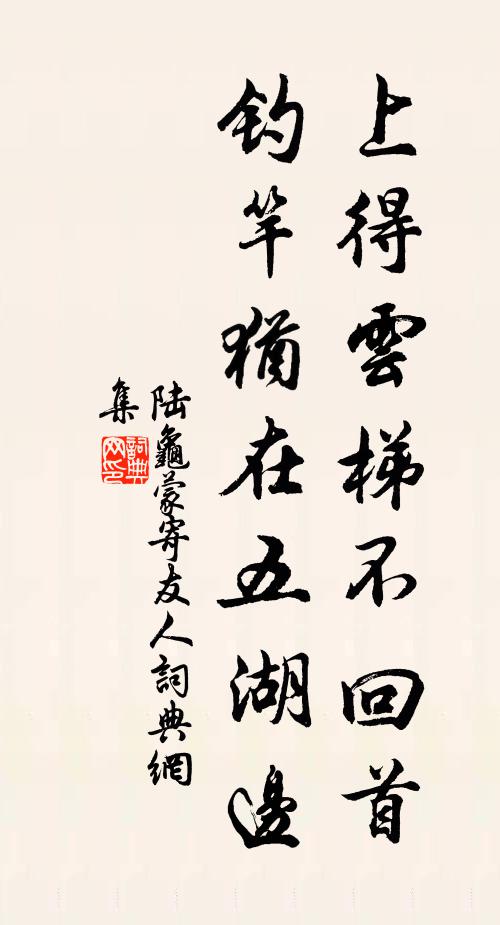 上得雲梯不回首
钓竿猶在五湖邊
陆龜蒙寄友人詞典網
集
詞典
网印